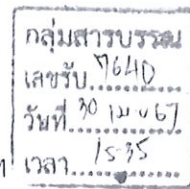 กลุ่มสารบรรณ
เลขรับ 7640
วันที่ 30 เม.ย 67
เวลา 15.35